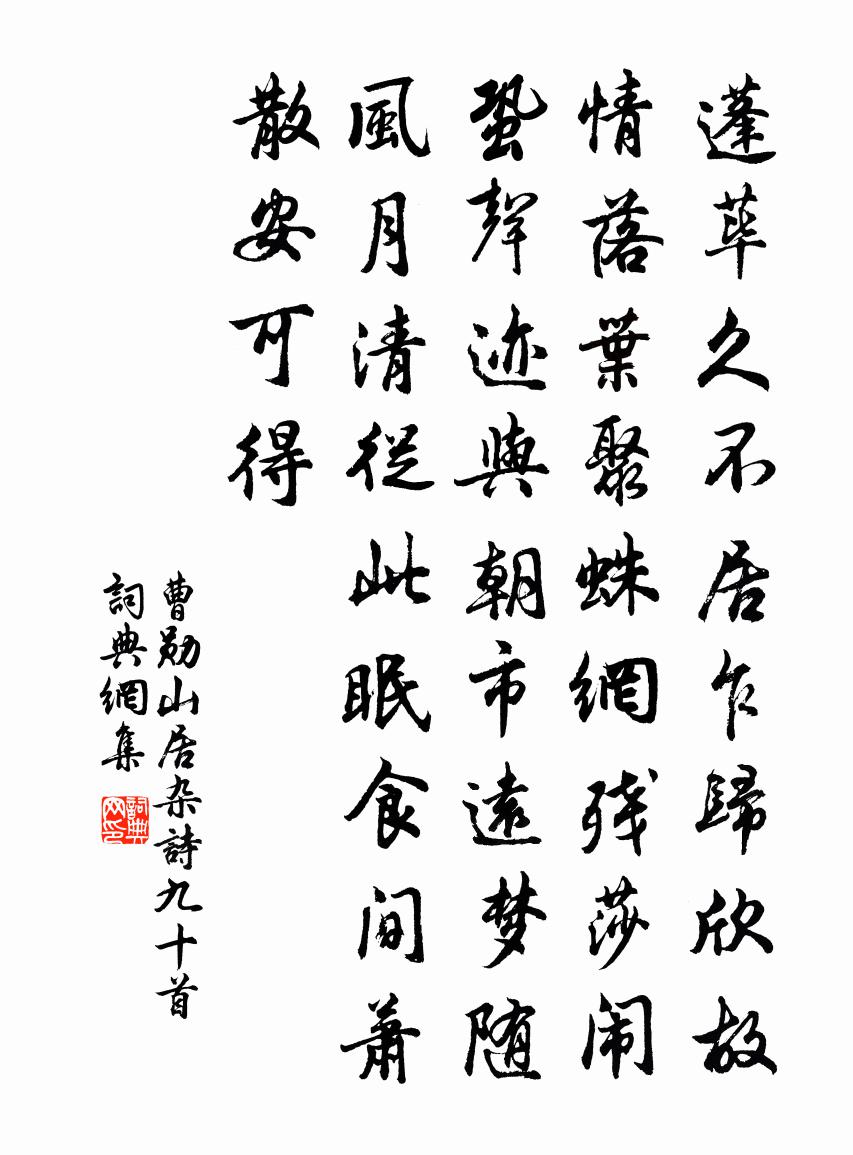 蓬荜久不居乍歸欣故
情落葉聚蛛網残莎闹
蛩聲迹與朝市遠梦随
風月清從此眠食间蕭
散安可得
曹勋山居杂詩九十首
詞典網集
詞典网印